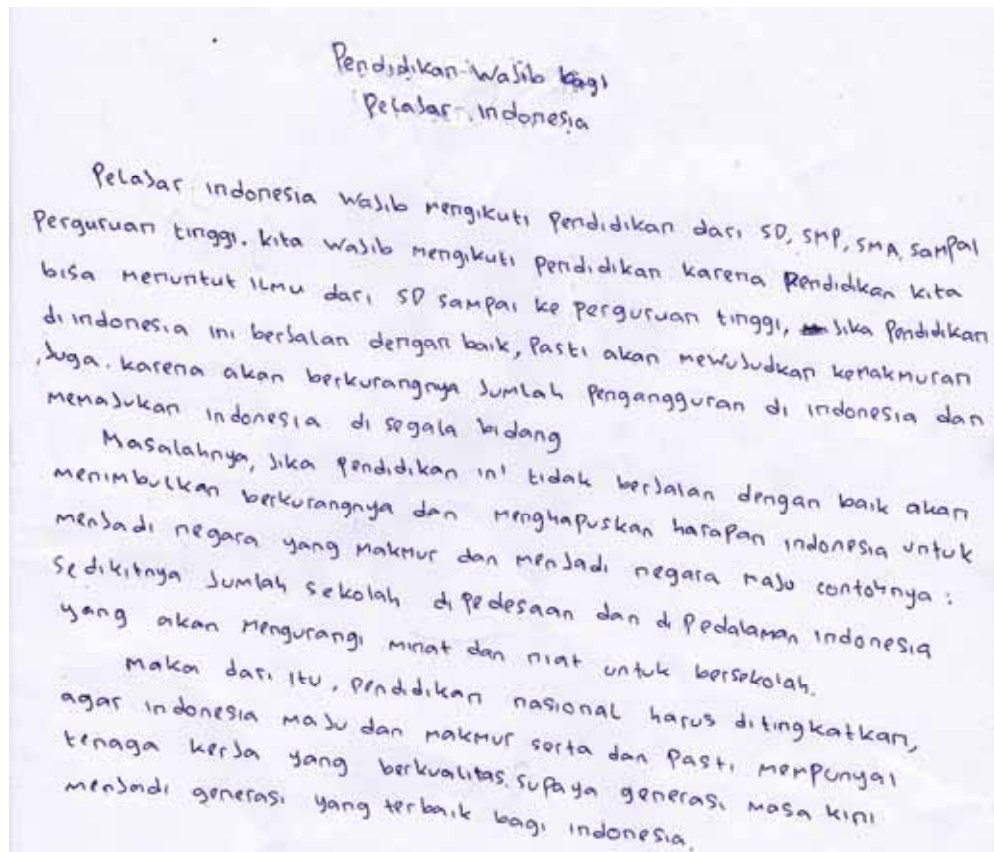 Pendidikan Wajib bagi
Pelajar Indonesia
Pelajar indonesia wajib mengikuti pendidikan dari SD, SMP, SMA, sampai
Perguruan tinggi. kita wajib mengikuti pendidikan karena pendidikan kita
bisa menuntut ilmu dari SD sampai ke perguruan tinggi, Jika Pendidikan
di indonesia ini berjalan dengan baik, Pasti akan mewujudkan kemakmuran
Juga. karena akan berkurangnya Jumlah pengangguran di indonesia dan
memajukan indonesia di segala bidang
Masalahnya, Jika pendidikan ini tidak berjalan dengan baik akan
menimbulkan berkurangnya dan menghapuskan harapan indonesia untuk
menjadi negara yang makmur dan menjadi negara maju contohnya :
Sedikitnya Jumlah sekolah di pedesaan dan di pedalaman indonesia
yang akan mengurangi minat dan niat untuk bersekolah.
maka dari itu, pendidikan nasional harus ditingkatkan,
agar indonesia maju dan makmur serta dan pasti mempunyai
tenaga kerja yang berkualitas. supaya generasi masa kini
menjadi generasi yang terbaik bagi indonesia.